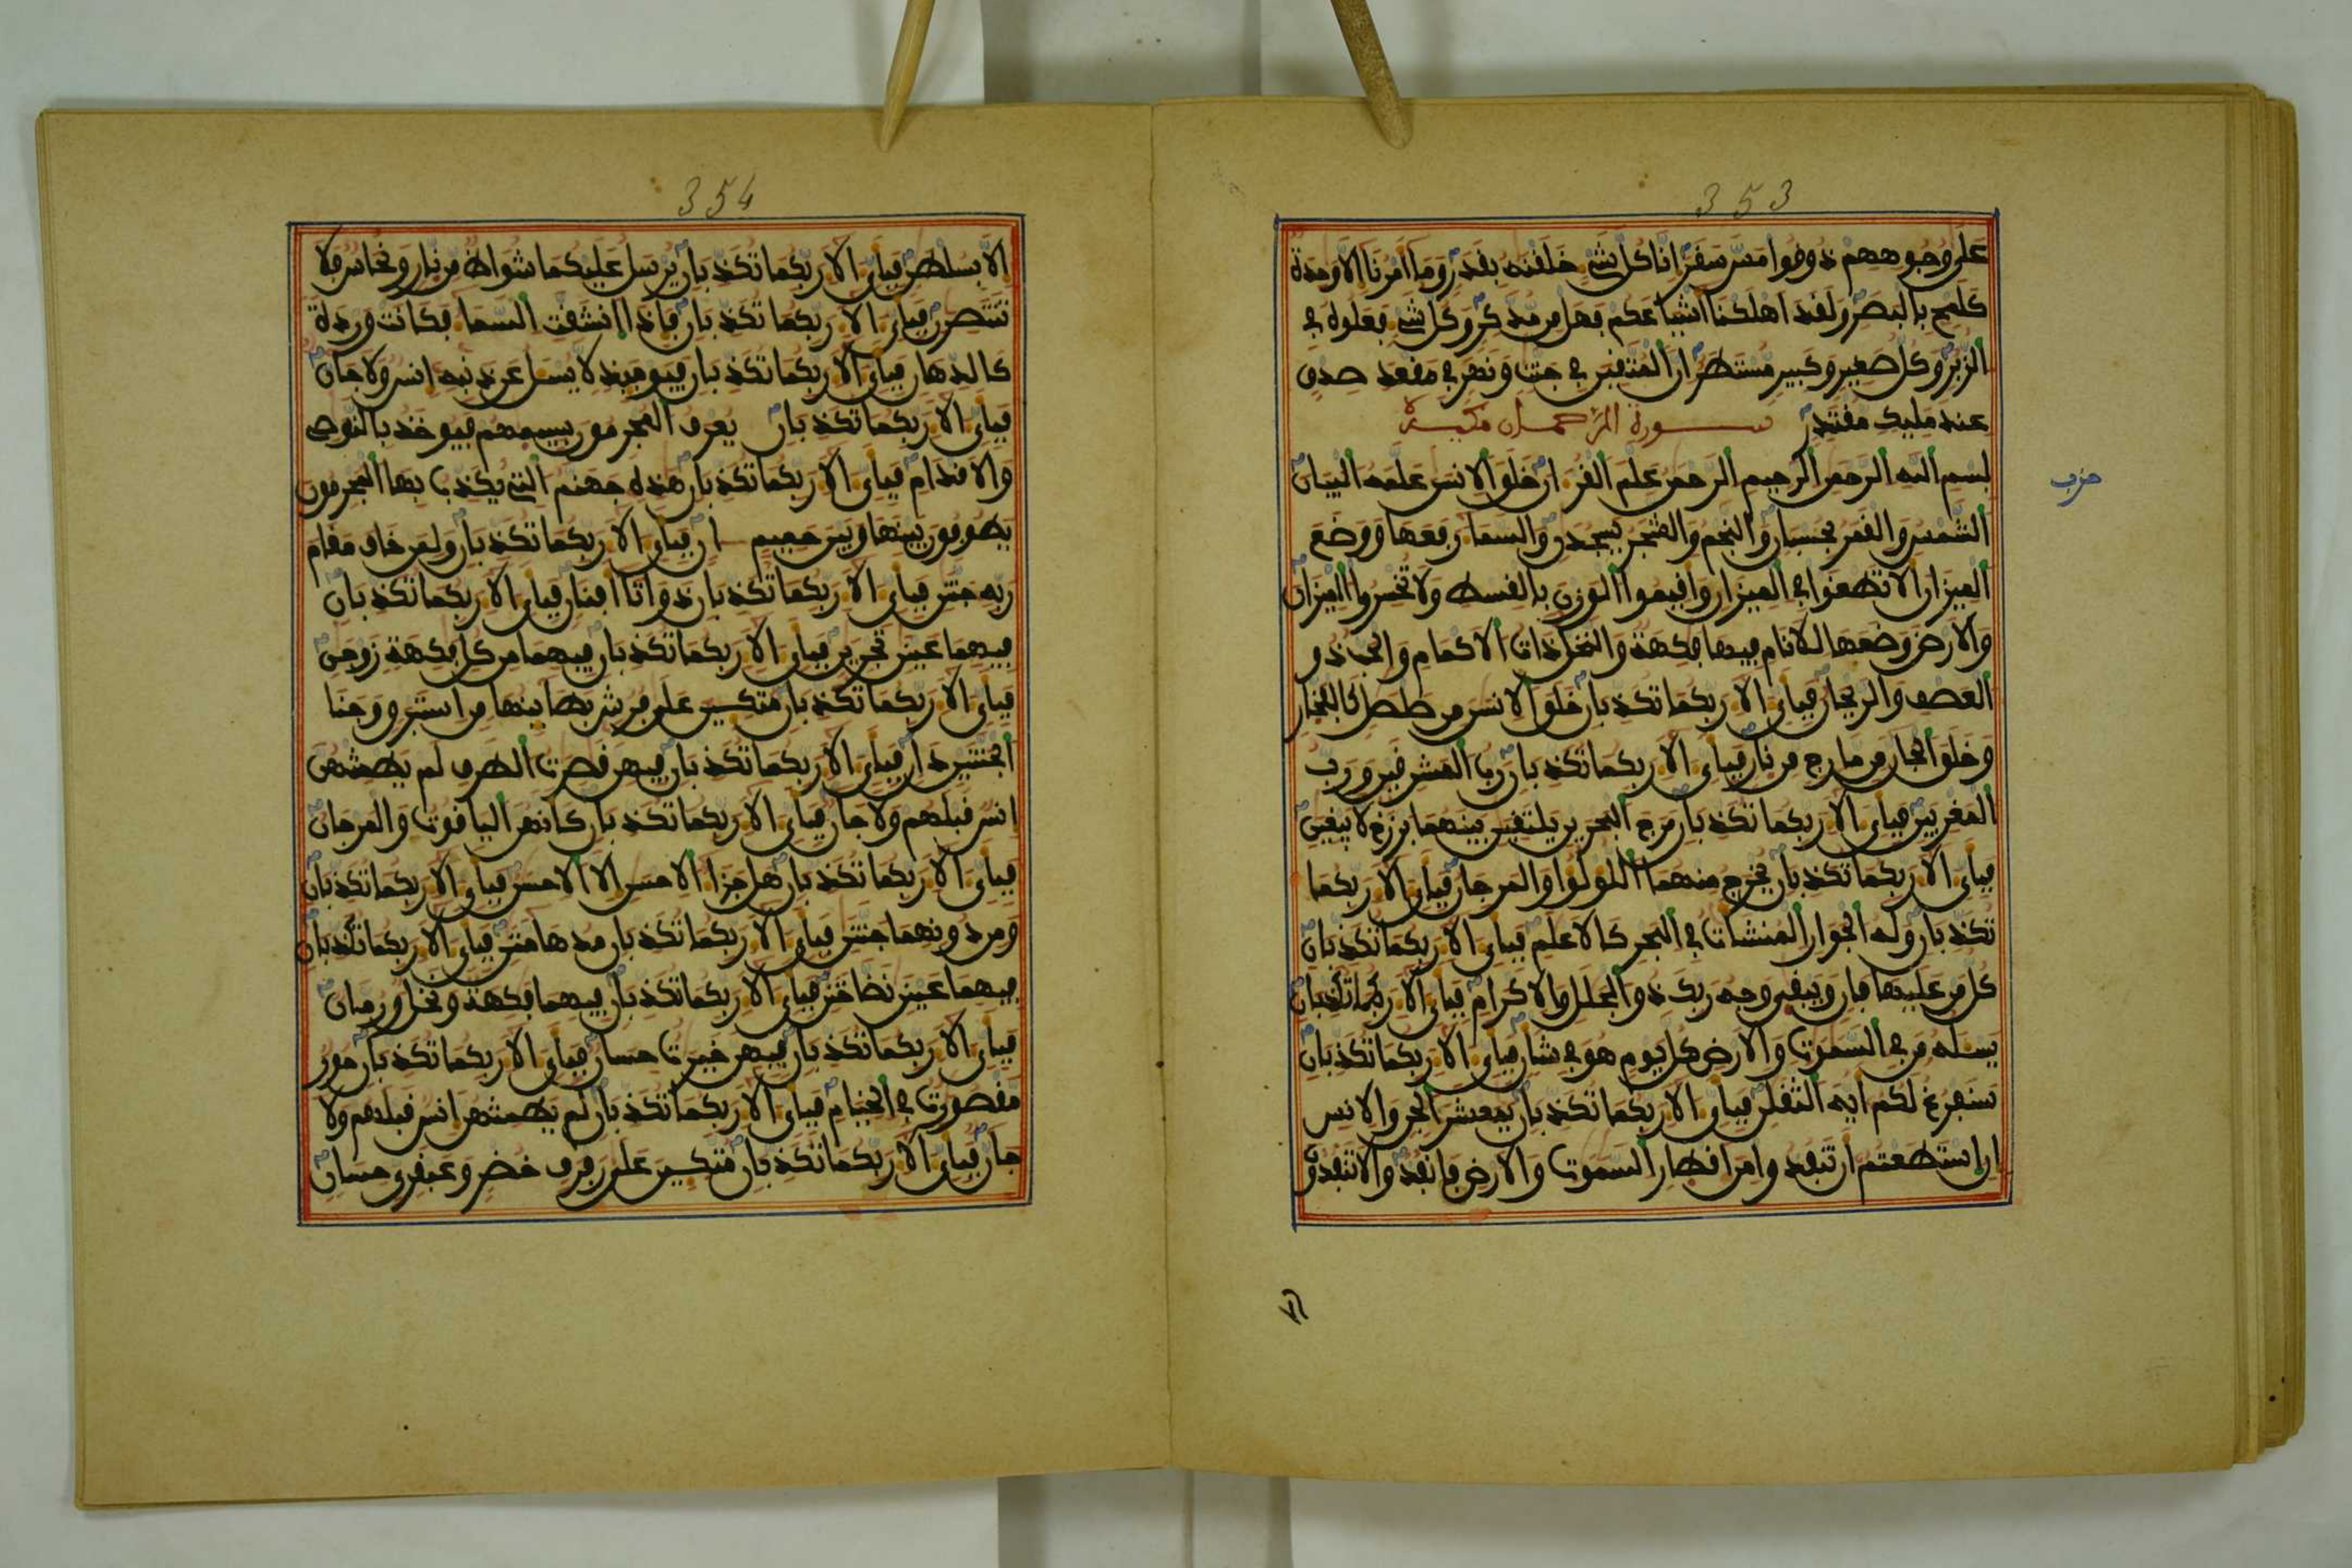 353
على وجوههم ذوفوا مس سفر انا كل شے خلفنه بفدر وما امرنا الا وحدة
كلمح بالبصر ولفد اهلكنا اشياعكم فهل من مدكر وكل شے فعلوه فے
الزبر وكل صغير وكبير مستطر ان المتفين فے جنت ونهر فے مفعد صدف
عند مليك مفتدر سورة الرحمان مكية
بسم الله الرحمن الرحيم الرحمن علم الفرءان خلو الانسن علمه البيان
حزب
الشمس والفمر بحسبان والنجم والشجر يسجدن والسما رفعها ووضع
الميزان الا تطغوا فے الميزان وافيموا الوزن بالفسط ولا تخسروا الميزان
والارض وضعها للانام فيها فكهة والنخل ذات الاكمام والحب ذو
العصف والريحان فباے الا ربكما تكذبان خلو الانسن من صلصل كالفخار
وخلو الجان من مارج من نار فباے الا ربكما تكذبان رب المشرفين ورب
المغربين فباے الا ربكما تكذبان مرج البحرين يلتفين بينهما برزخ لا يبغين
فباے الا ربكما تكذبان يخرج منهما اللولوا والمرجان فباے الا ربكما
تكذبان وله الجوار المنشات فے البحر كالاعلم فباے الا ربكما تكذبان
كل من عليها فان ويبفى وجه ربك ذو الجلل والاكرام فباے الا ربكما تكذبان
يسله من فے السموت والارض كل يوم هو فے شان فباے الا ربكما تكذبان
سنفرغ لكم ايه الثفلن فباے الا ربكما تكذبان يمعشر الجن والانس
ان استطعتم ان تنفذوا من افطار السموت والارض فانفذوا لا تنفذون
354
الا بسلطن فباے الا ربكما تكذبان يرسل عليكما شواظ من نار ونحاس فلا
تنتصرن فباے الا ربكما تكذبان فاذا انشفت السما فكانت وردة
كالدهان فباے الا ربكما تكذبان فيوميذ لا يسل عن ذنبه انس ولا جان
فباے الا ربكما تكذبان يعرف المجرمون بسيمهم فيوخذ بالنوصے
والافدام فباے الا ربكما تكذبان هذه جهنم التے يكذب بها المجرمون
يطوفون بينها وبين حميم ان فباے الا ربكما تكذبان ولمن خاف مفام
ربه جنتن فباے الا ربكما تكذبان ذواتا افنان فباے الا ربكما تكذبان
فيهما عينن تجرين فباے الا ربكما تكذبان فيهما من كل فكهة زوجن
فباے الا ربكما تكذبان متكين على فرش بطاينها من استبرو وجنا
الجنتين دان فباے الا ربكما تكذبان فيهن فصرت الطرف لم يطمثهن
انس فبلهم ولا جان فباے الا ربكما تكذبان كانهن اليافوت والمرجان
فباے الا ربكما تكذبان هل جزا الاحسن الا الاحسن فباے الا ربكما تكذبان
ومن دونهما جنتن فباے الا ربكما تكذبان مدهامتن فباے الا ربكما تكذبان
فيهما عينن نضاختن فباے الا ربكما تكذبان فيهما فكهة ونخل ورمان
فباے الا ربكما تكذبان فيهن خيرت حسان فباے الا ربكما تكذبان حور
مفصورت فے الخيام فباے الا ربكما تكذبان لم يطمثهن انس فبلهم ولا
جان فباے الا ربكما تكذبان متكين على رفرف خضر وعبفرى حسان